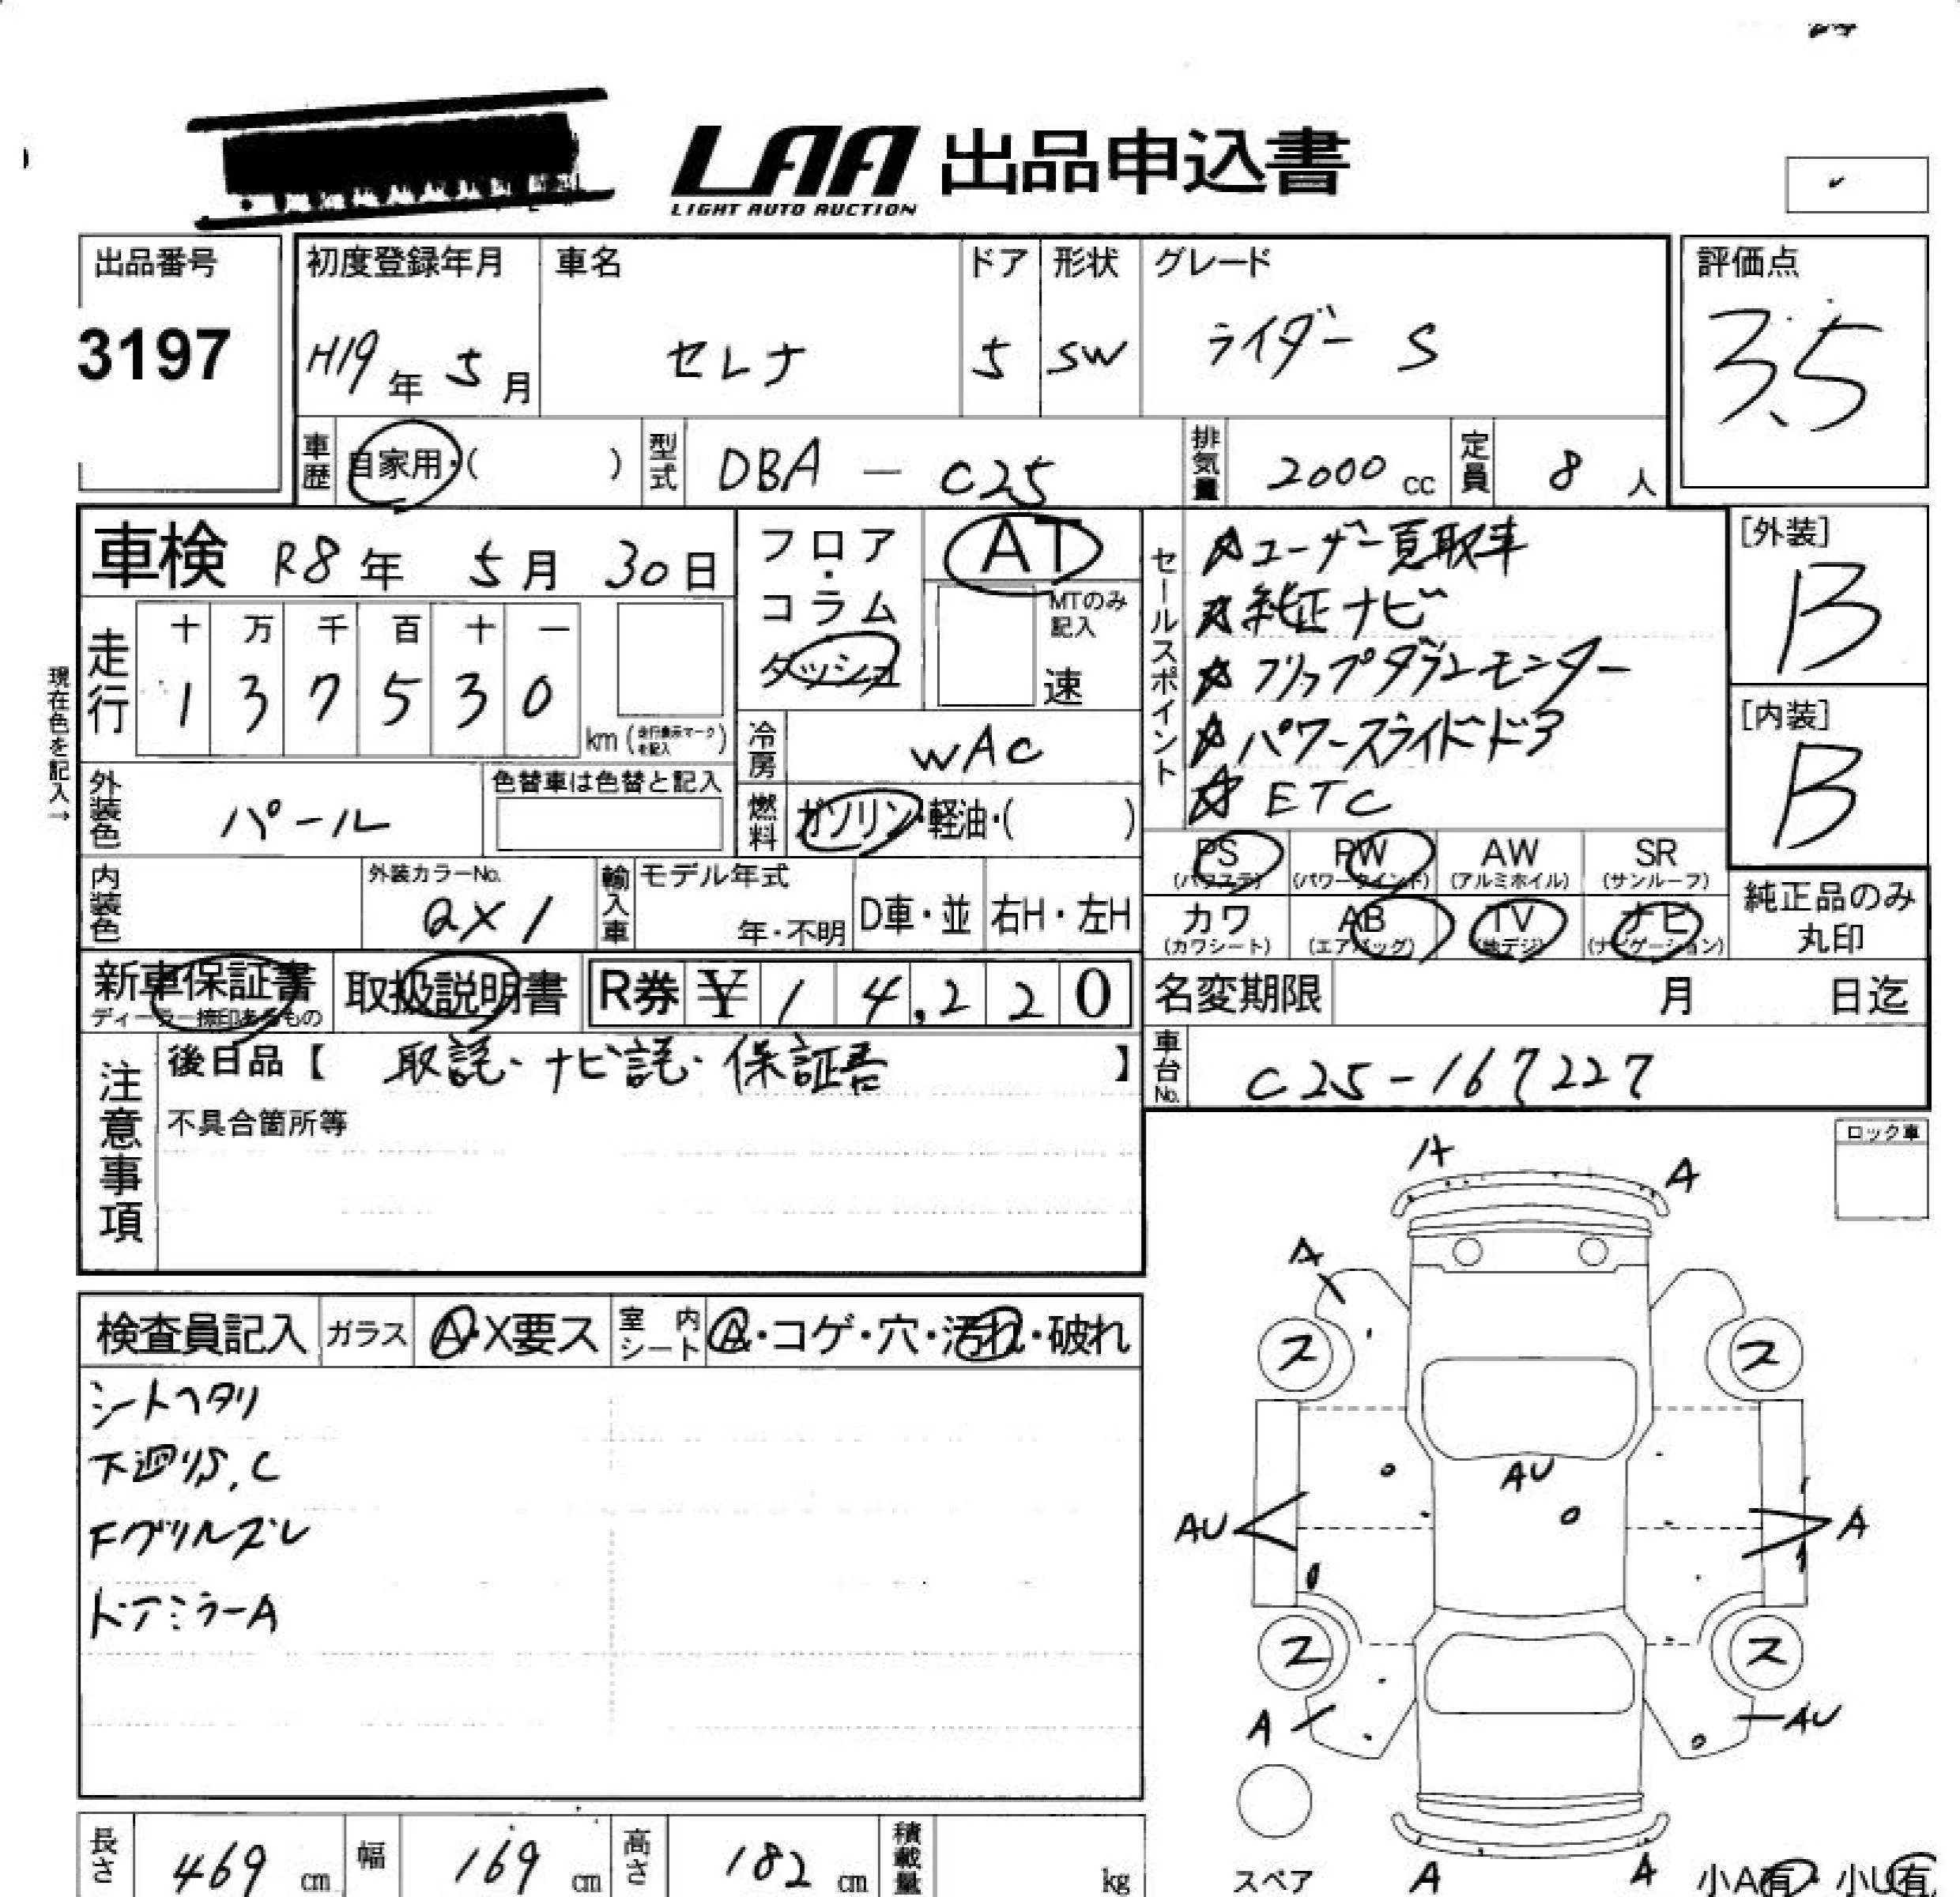 LAA 出品申込書
LIGHT AUTO AUCTION
出品番号
3197
初度登録年月
H19年 5月
車名
セレナ
ドア
5
形状
SW
グレード
ライダー S
評価点
3.5
車歴
自家用・( )
型式
DBA - C25
排気量
2000 cc
定員
8 人
車検 R8年 5月 30日
フロア・コラム
ダッシュ
AT
MTのみ記入
速
セールスポイント
☆ユーザー買取車
☆純正ナビ
☆フリップダウンモニター
☆パワースライドドア
☆ETC
[外装]
B
[内装]
B
現在色を記入→
走行
十 万 千 百 十 一
1 3 7 5 3 0
km (走行表示マークを記入)
冷房
WAC
外装色
パール
色替車は色替と記入
燃料
ガソリン・軽油・( )
PS (パワステ)
PW (パワーウインド)
AW (アルミホイル)
SR (サンルーフ)
カワ (カワシート)
AB (エアバッグ)
TV (地デジ)
ナビ (ナビゲーション)
純正品のみ
丸印
内装色
外装カラーNo.
QX1
輸入車
モデル年式
年・不明
D車・並
右H・左H
新車保証書
ディーラー捺印あるもの
取扱説明書
R券 ¥14,220
名変期限 月 日迄
注意事項
後日品【 取説・ナビ説・保証書 】
不具合箇所等
車台No.
C25-167227
ロック車
検査員記入
ガラス
A・X要ス
室内シート
A・コゲ・穴・汚れ・破れ
シートヘタリ
下廻りS,C
Fグリルズレ
ドアミラーA
A
A
A
ス
ス
AU
AU
A
ス
ス
A
AU
スペア
A
A
小A有・小U有
長さ
469 cm
幅
169 cm
高さ
182 cm
積載量
kg